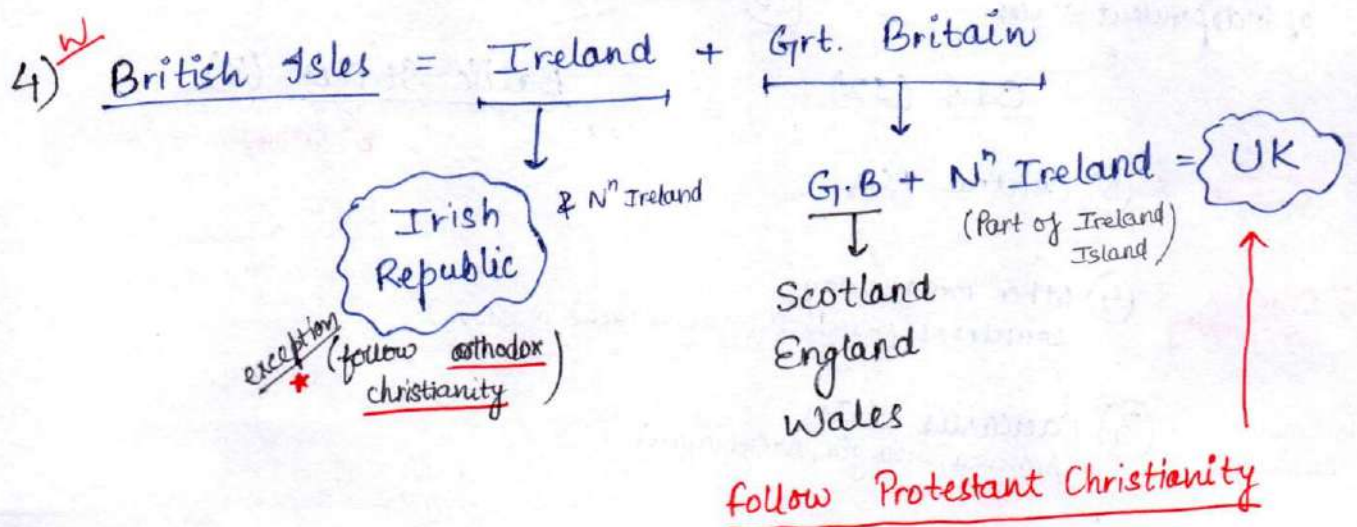 4) W British Isles = Ireland + Grt. Britain
Irish Republic & Nⁿ Ireland
exception
★ (follow orthodox christianity)
G.B + Nⁿ Ireland = UK
(Part of Ireland Island)
Scotland
England
Wales
follow Protestant Christianity